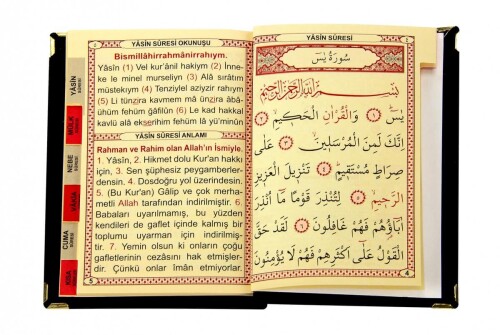 YÂSİN SÛRESİ OKUNUŞU
Bismillâhirrahmânirrahıym.
Yâsîn (1) Vel kur'ânil hakiym (2) İnne-
ke le minel murseliyn (3) Alâ sırâtım
müstekıym (4) Tenziylel aziyzir rahıym
(5) Li tünzira kavmem mâ ünzira âbâ-
ühüm fehüm ğâfilûn (6) Le kad hakkal
kavlü alâ ekserihim fehüm lâ yü'minûn
YÂSİN SÛRESİ ANLAMI
Rahman ve Rahim olan Allah'ın İsmiyle.
1. Yâsîn, 2. Hikmet dolu Kur'an hakkı
için, 3. Sen şüphesiz peygamberler-
densin. 4. Dosdoğru yol üzerindesin.
5. (Bu Kur'an) Gâlip ve çok merha-
metli Allah tarafından indirilmiştir. 6.
Babaları uyarılmamış, bu yüzden
kendileri de gaflet içinde kalmış bir
toplumu uyarman için indirilmiş-
tir. 7. Yemin olsun ki onların çoğu
gafletlerinin cezasını hak etmişler-
dir. Çünkü onlar îman etmiyorlar.
5
YÂSİN
SÛRESİ
MÜLK
SÛRESİ
NEBE
SÛRESİ
VAKIA
SÛRESİ
CUMA
SÛRESİ
KISA
YÂSİN SÛRESİ
سُورَةُ يٰسٓ
بِسْمِ اللّٰهِ الرَّحْمٰنِ الرَّحِيمِ
يٰسٓ ﴿١﴾ وَالْقُرْاٰنِ الْحَكِيمِ ﴿٢﴾
اِنَّكَ لَمِنَ الْمُرْسَلِينَ ﴿٣﴾ عَلٰى
صِرَاطٍ مُسْتَقِيمٍ ﴿٤﴾ تَنْزِيلَ الْعَزِيزِ
الرَّحِيمِ ﴿٥﴾ لِتُنْذِرَ قَوْمًا مَٓا اُنْذِرَ
اٰبَٓاؤُهُمْ فَهُمْ غَافِلُونَ ﴿٦﴾ لَقَدْ حَقَّ
الْقَوْلُ عَلٰٓى اَكْثَرِهِمْ فَهُمْ لَا يُؤْمِنُونَ
4